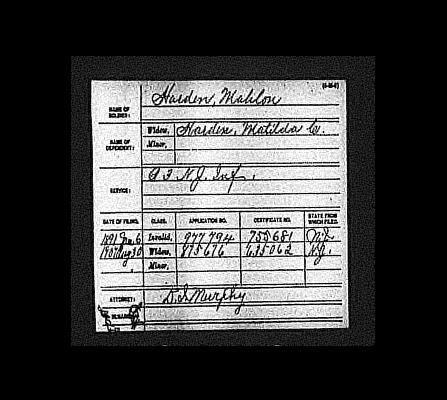 NAME OF SOLDIER: Harden, Mahlon
NAME OF DEPENDENT: Widow, Harden, Matilda C.
Minor,
SERVICE: N.J. Inf.
DATE OF FILING. CLASS. APPLICATION NO. CERTIFICATE NO. STATE FROM WHICH FILED.
1891 6 Invalid, 977794 755681 N.J.
1907 Aug 30 Widow, 875676 635062 N.J.
Minor,
ATTORNEY: Murphy
REMARKS: